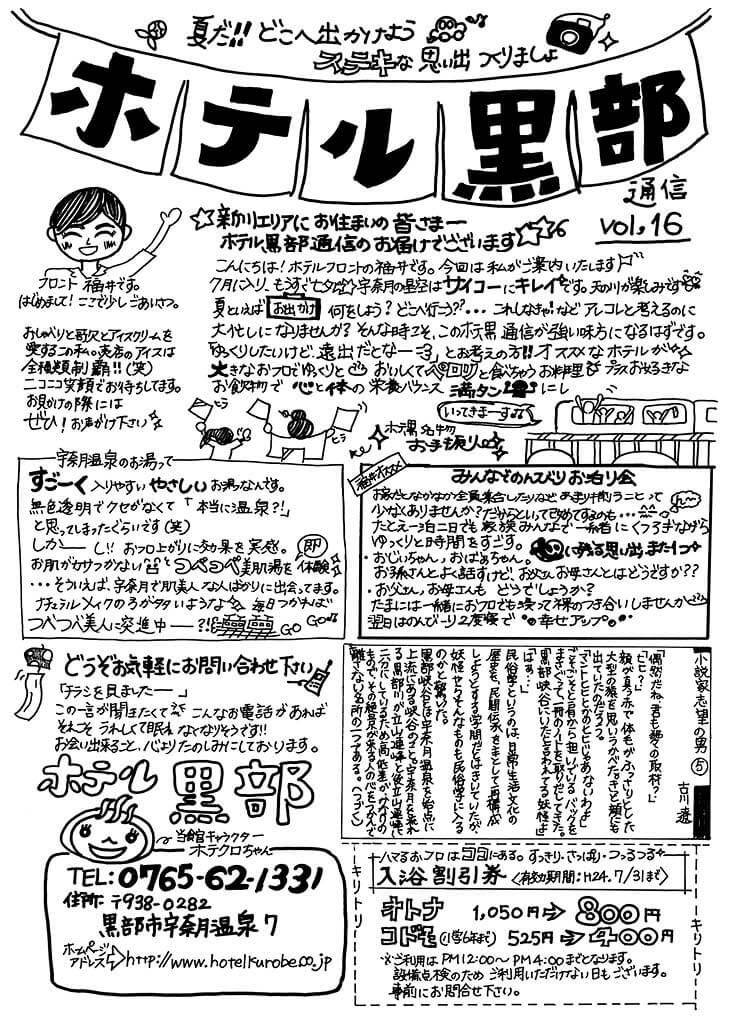 夏だ!! どこへ出かけよう
ステキな思い出 つくりましょ
ホテル黒部
通信
vol.16
☆新川エリアにお住まいの皆さまー
ホテル黒部通信のお届けでございます☆
こんにちは!ホテルフロントの福井です。今回は私がご案内いたします
7月に入り、もうすぐ七夕☆宇奈月の星空はサイコーにキレイです。天の川が楽しみです
夏といえばお出かけ 何をしよう?どこへ行こう??・・・これしなきゃ!など アレコレと考えるのに
大忙しになりませんか?そんな時こそ、このホテ黒通信が強い味方になるはずです。
「ゆっくりしたいけど、遠出だとなー」とお考えの方!!オススメなホテルが
大きなおフロでゆっくりと おいしくてペロリッと食べちゃうお料理 プラスお好きな
お飲物で 心と体の栄養バランス 満タンにし
フロント 福井です。
はじめまして!ここで少しごあいさつ。
おしゃべりと歌とアイスクリームを
愛するこの私。売店のアイスは
全種類制覇!!(笑)
ニコニコ笑顔でお待ちしてます。
お見かけの際には
ぜひ!お声がけ下さい
ヒラ
ヒラ
いってきまーす
ホテ黒名物
お手振り
宇奈月温泉のお湯って
すごーく入りやすいやさしいお湯なんです。
無色透明でクセがなくて「本当に温泉?!」
と思ってしまったぐらいです(笑)
しかーし!!お フロ上がりに効果を実感。即
お肌がカサつかないとつべつべ美肌湯を体験
・・・そういえば、宇奈月で肌美人な人ばかりに出会ってます。
ナチュラルメイクの方がタタいような 毎日つかれば
つべつべ美人に突進中ー?!! GO GO
福井オススメ
みんなでのんびりお泊り会
お家だとなかなか全員集合したりなど あまり無いことって
少なくありませんか?だからといって改めてするのも・・・
たとえ一泊二日でも家族みんなで一緒にくつろぎながら
ゆっくりと時間をすごす。心に残る思い出また1つ
・おじいちゃん、おばあちゃん。
お孫さんとよく話すけど、お父さんお母さんとはどうですか??
・お父さん、お母さんも どうでしょうか?
たまには一緒におフロでも浸って裸のつき合いしませんか
翌日はのんびーり2度寝で 幸せアップ
どうぞお気軽にお問い合わせ下さい
「チラシを見ましたー」
この一言が聞きたくて こんなお電話があれば
それこそ うれしくて眠れなくなりそうです!!
お会い出来ること、心よりたのしみにしております。
ホテル黒部
当館キャラクター
ホテクロちゃん
TEL:0765-62-1331
住所:〒938-0282
黒部市宇奈月温泉7
ホームページ
アドレス
http://www.hotelkurobe.co.jp
小説家志望の男⑤
古川 遼
「偶然だね。君も夢々の取材?」
「ヒヒ?」
顔が真っ赤で体毛がふさりとした
大型の猿を思いうかべたっきと頬にも
出ていたのだろう。
「マントヒヒとかのヒヒじゃあないわよ」
ごそごそと肩から担いでいるバッグを
まさぐって一冊のノートを取りだしてきた。
「黒部峡谷にいたといわれてる妖怪よ」
「はぁ?」
民俗学というのは、日常生活文化の
歴史を、民間伝承をもとにして再構成
しようとする学問だとはきいていたが、
妖怪とやらそんなものも民俗学に入る
のかと驚いた。
黒部峡谷とは宇奈月温泉を始点に
上流にある峡谷のこと。宇奈月を流れ
る黒部川が立山連峰と後立山連峰で
二分にしているため高低差がかなりの
もので、その絶景が来る人の心をつかんで
離さない名所の一つである。(つづく)
ハマるおフロはココにある。すっきり・さっぱり・つるつる
入浴割引券〈有効期間:H24.7/31まで〉
オトナ 1,050円⇨800円
コドモ(小学6年まで) 525円⇨400円
※ご利用はPM12:00~PM4:00までとなります。
設備点検のためご利用いただけない日もございます。
事前にお問合せ下さい。
キリトリ
キリトリ